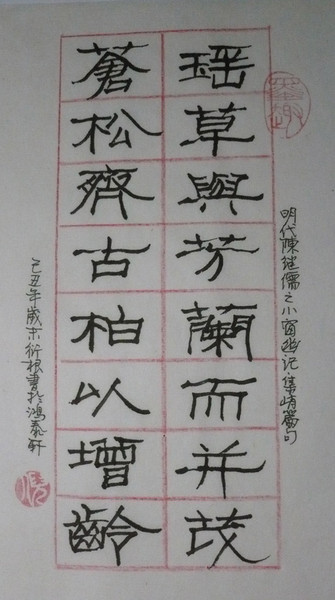 明代陳继儒之小窗幽记·集峭篇句
瑶草與芳蘭而并茂
蒼松齊古柏以增齡
己丑年歲末衍根書於鴻泰轩